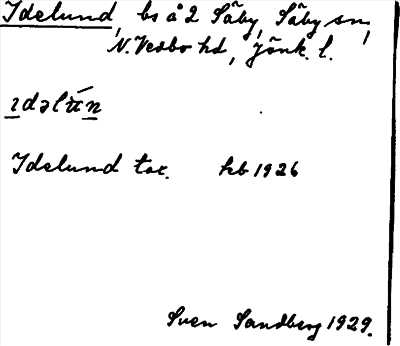 Idelund, bs å 2 Säby, Säby sn,
N. Vedbo hd, Jönk. l.
ɪdəlún
Idelund tax. hb 1926
Sven Sandberg 1929.